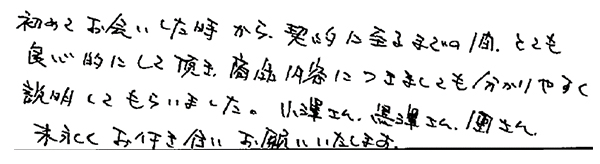 初めてお会いした時から、契約に至るまでの間、とても
良心的にして頂き、商品内容につきましても分かりやすく
説明してもらいました。小澤さん、黒澤さん、園さん、
末永くお付き合いお願いいたします。